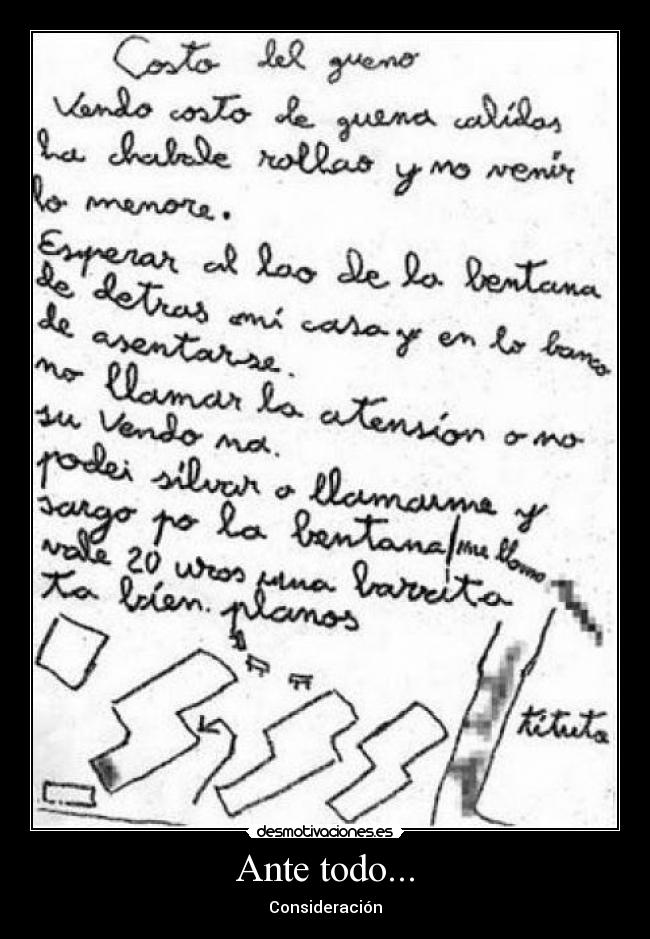 Costo del gueno
Vendo costo de guena calidas
ha chabale rollao y no venir
lo menore.
Esperar al lao de la bentana
de detras mi casa y en lo banco
de asentarse.
no llamar la atension o no
su vendo na.
podei silvar o llamarme y
sargo po la bentana/me llamo
vale 20 uros una barrita
ta bien. planos
tituta
desmotivaciones.es
Ante todo...
Consideración